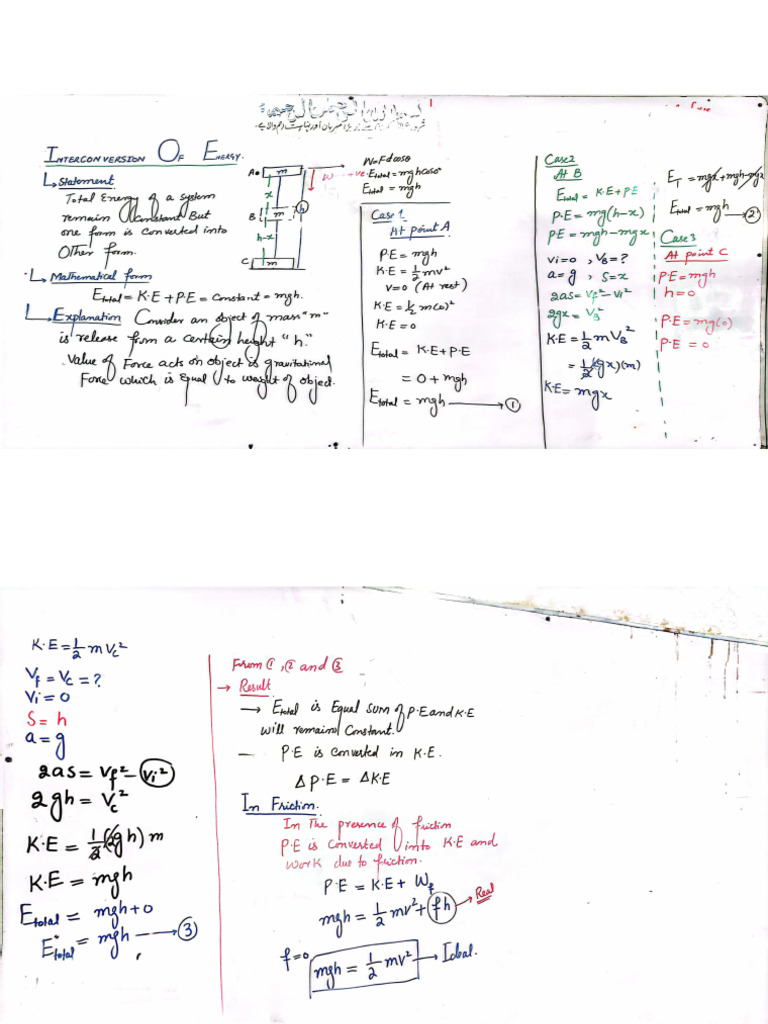 بسم اللہ الرحمن الرحیم
INTERCONVERSION OF ENERGY.
Statement
Total Energy of a system
remain constant But
one form is converted into
Other form.
Mathematical form
E_total = K.E + P.E = Constant = mgh.
Explanation Consider an object of mass "m"
is release from a certain height "h".
Value of Force acts on object is gravitational
Force which is Equal to weight of object.
A m
x
B m h
h-x
C m
W
W=Fd cosθ
+ve. E_total = mgh cos0°
E_total = mgh
Case 1
At point A
P.E = mgh
K.E = 1/2 mv²
v=0 (At rest)
K.E = 1/2 m(0)²
K.E = 0
E_total = K.E+P.E
= 0 + mgh
E_total = mgh ①
Case2
At B
E_total = K.E+P.E
P.E = mg(h-x)
P.E = mgh-mgx
vi=0 , V_B = ?
a=g , S=x
2as = Vf²-Vi²
2gx = V_B²
K.E = 1/2 m V_B²
= 1/2 (2gx)(m)
K.E = mgx
E_T = mgx+mgh-mgx
E_total = mgh ②
Case 3
At point C
P.E = mgh
h=0
P.E = mg(0)
P.E = 0
K.E = 1/2 m Vc²
Vf = Vc = ?
Vi = 0
S = h
a = g
2as = Vf² - Vi²
2gh = Vc²
K.E = 1/2 (2gh) m
K.E = mgh
E_total = mgh+0
E_total = mgh ③
From ①, ② and ③
→ Result
→ E_total is Equal sum of P.E and K.E
will remain Constant.
— P.E is converted in K.E.
Δ P.E = Δ K.E
In Friction.
In The presence of friction
P.E is Converted into K.E and
work due to friction.
P.E = K.E + W_f
mgh = 1/2 mv² + fh → Real
f=0
mgh = 1/2 mv² → Ideal.